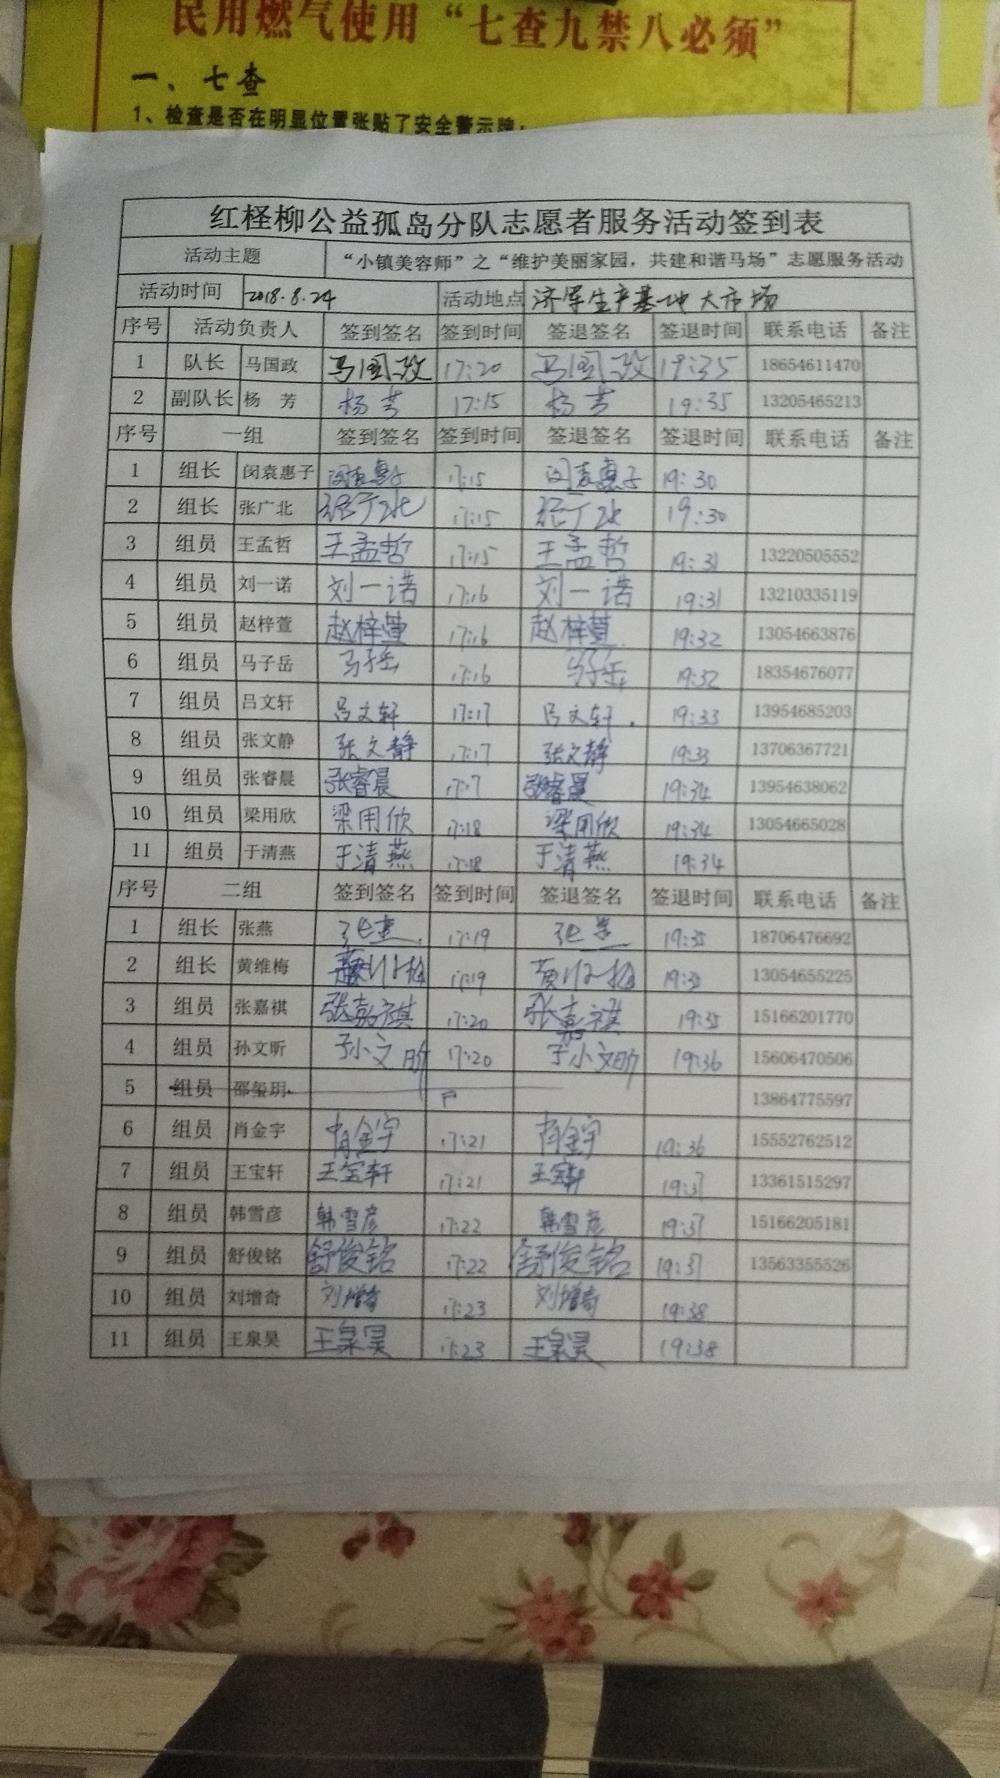 民用燃气使用“七查九禁八必须”
一、七查
1、检查是否在明显位置张贴了安全警示牌；
红柽柳公益孤岛分队志愿者服务活动签到表
活动主题 “小镇美容师”之“维护美丽家园，共建和谐马场”志愿服务活动
活动时间 2018.8.24 活动地点 济军生产基地大市场
序号 活动负责人 签到签名 签到时间 签退签名 签退时间 联系电话 备注
1 队长 马国政 马国政 17:20 马国政 19:35 18654611470
2 副队长 杨 芳 杨芳 17:15 杨芳 19:35 13205465213
序号 一组 签到签名 签到时间 签退签名 签退时间 联系电话 备注
1 组长 闵袁惠子 闵袁惠子 17:15 闵袁惠子 19:30
2 组长 张广北 张广北 17:15 张广北 19:30
3 组员 王孟哲 王孟哲 17:15 王孟哲 19:31 13220505552
4 组员 刘一诺 刘一诺 17:16 刘一诺 19:31 13210335119
5 组员 赵梓萱 赵梓萱 17:16 赵梓萱 19:32 13054663876
6 组员 马子岳 马子岳 17:16 马子岳 19:32 18354676077
7 组员 吕文轩 吕文轩 17:17 吕文轩 19:33 13954685203
8 组员 张文静 张文静 17:17 张文静 19:33 13706367721
9 组员 张睿晨 张睿晨 17:17 张睿晨 19:34 13954638062
10 组员 梁用欣 梁用欣 17:18 梁用欣 19:34 13054665028
11 组员 于清燕 于清燕 17:18 于清燕 19:34
序号 二组 签到签名 签到时间 签退签名 签退时间 联系电话 备注
1 组长 张燕 张燕 17:19 张燕 19:35 18706476692
2 组长 黄维梅 黄维梅 17:19 黄维梅 19:35 13054655225
3 组员 张嘉祺 张嘉祺 17:20 张嘉祺 19:35 15166201770
4 组员 孙文昕 孙文昕 17:20 孙文昕 19:36 15606470506
5 组员 邵玺玥 13864775597
6 组员 肖金宇 肖金宇 17:21 肖金宇 19:36 15552762512
7 组员 王宝轩 王宝轩 17:21 王宝轩 19:37 13361515297
8 组员 韩雪彦 韩雪彦 17:22 韩雪彦 19:37 15166205181
9 组员 舒俊铭 舒俊铭 17:22 舒俊铭 19:37 13563355526
10 组员 刘增奇 刘增奇 17:23 刘增奇 19:38
11 组员 王泉昊 王泉昊 17:23 王泉昊 19:38